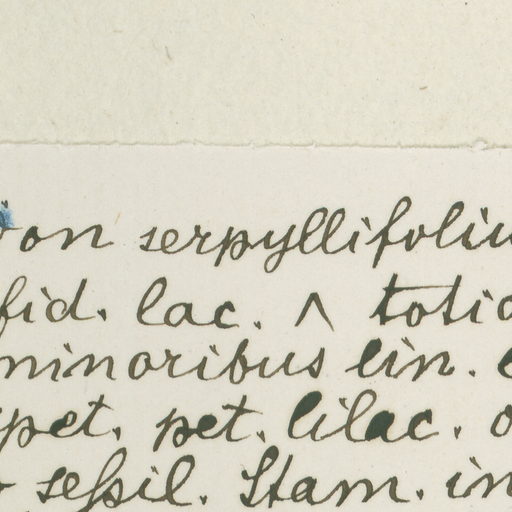 on serpyllifoliu
fid. lac. ^ totid
minoribus lin.
pet. pet. lilac. o
sessil. Stam. in